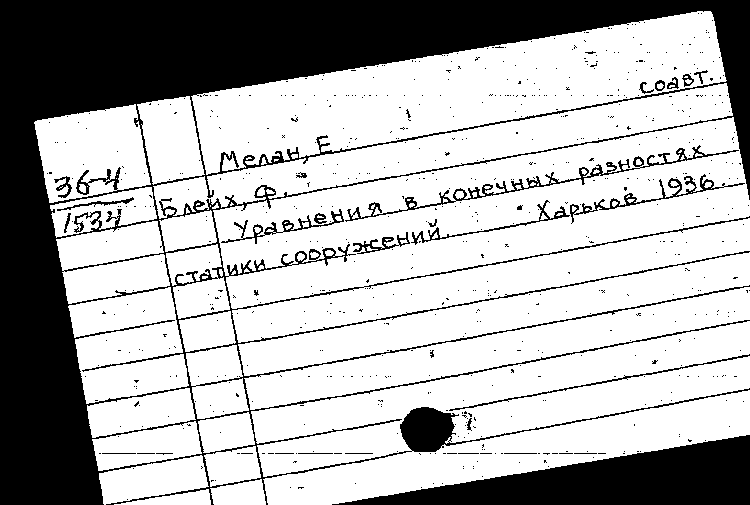 соавт.
Мелан, Е.
36-4
1534
Блейх, Ф.
Уравнения в конечных разностях
статики сооружений. Харьков. 1936.